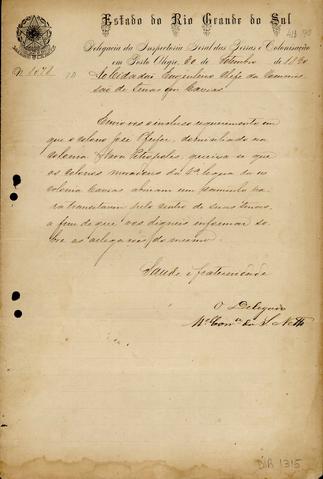 Estado do Rio Grande do Sul
Delegacia da Inspectoria Geral das Terras e Colonisação
em Porto Alegre, 20 de Setembro de 1890
Ao Cidadão Engenheiro Chefe da Commis-
são de terras em Caxias
Envio vos o incluso requerimento em
que o colono José Pfeifer, domiciliado na
colonia Nova Petropolis, queixa se que
os colonos moradores da 9ª legua da ex
colonia Caxias abriram um caminho pa-
ra transitarem pelo centro de suas terras,
a fim de que vos digneis informar so-
bre as allegações do mesmo.
Saude e fraternidade
O Delegado
DIR 1315